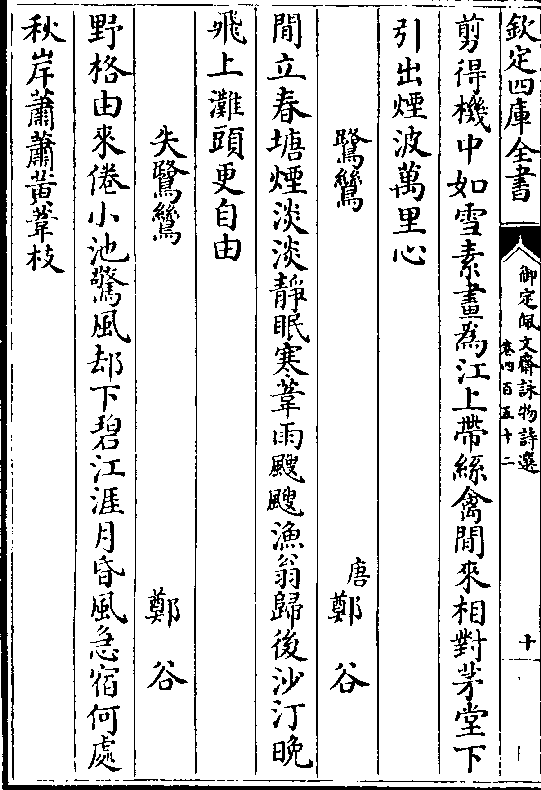 欽定四庫全書
御定佩文齋詠物詩選
卷四百五十二
十
剪得機中如雪素畫為江上帶絲禽閒來相對茅堂下
引出煙波萬里心
鷺鷥
唐鄭谷
閒立春塘煙淡淡靜眠寒葦雨颼颼漁翁歸後沙汀晚
飛上灘頭更自由
失鷺鷥
鄭谷
野格由來倦小池驚風却下碧江涯月昏風急宿何處
秋岸蕭蕭黃葦枝